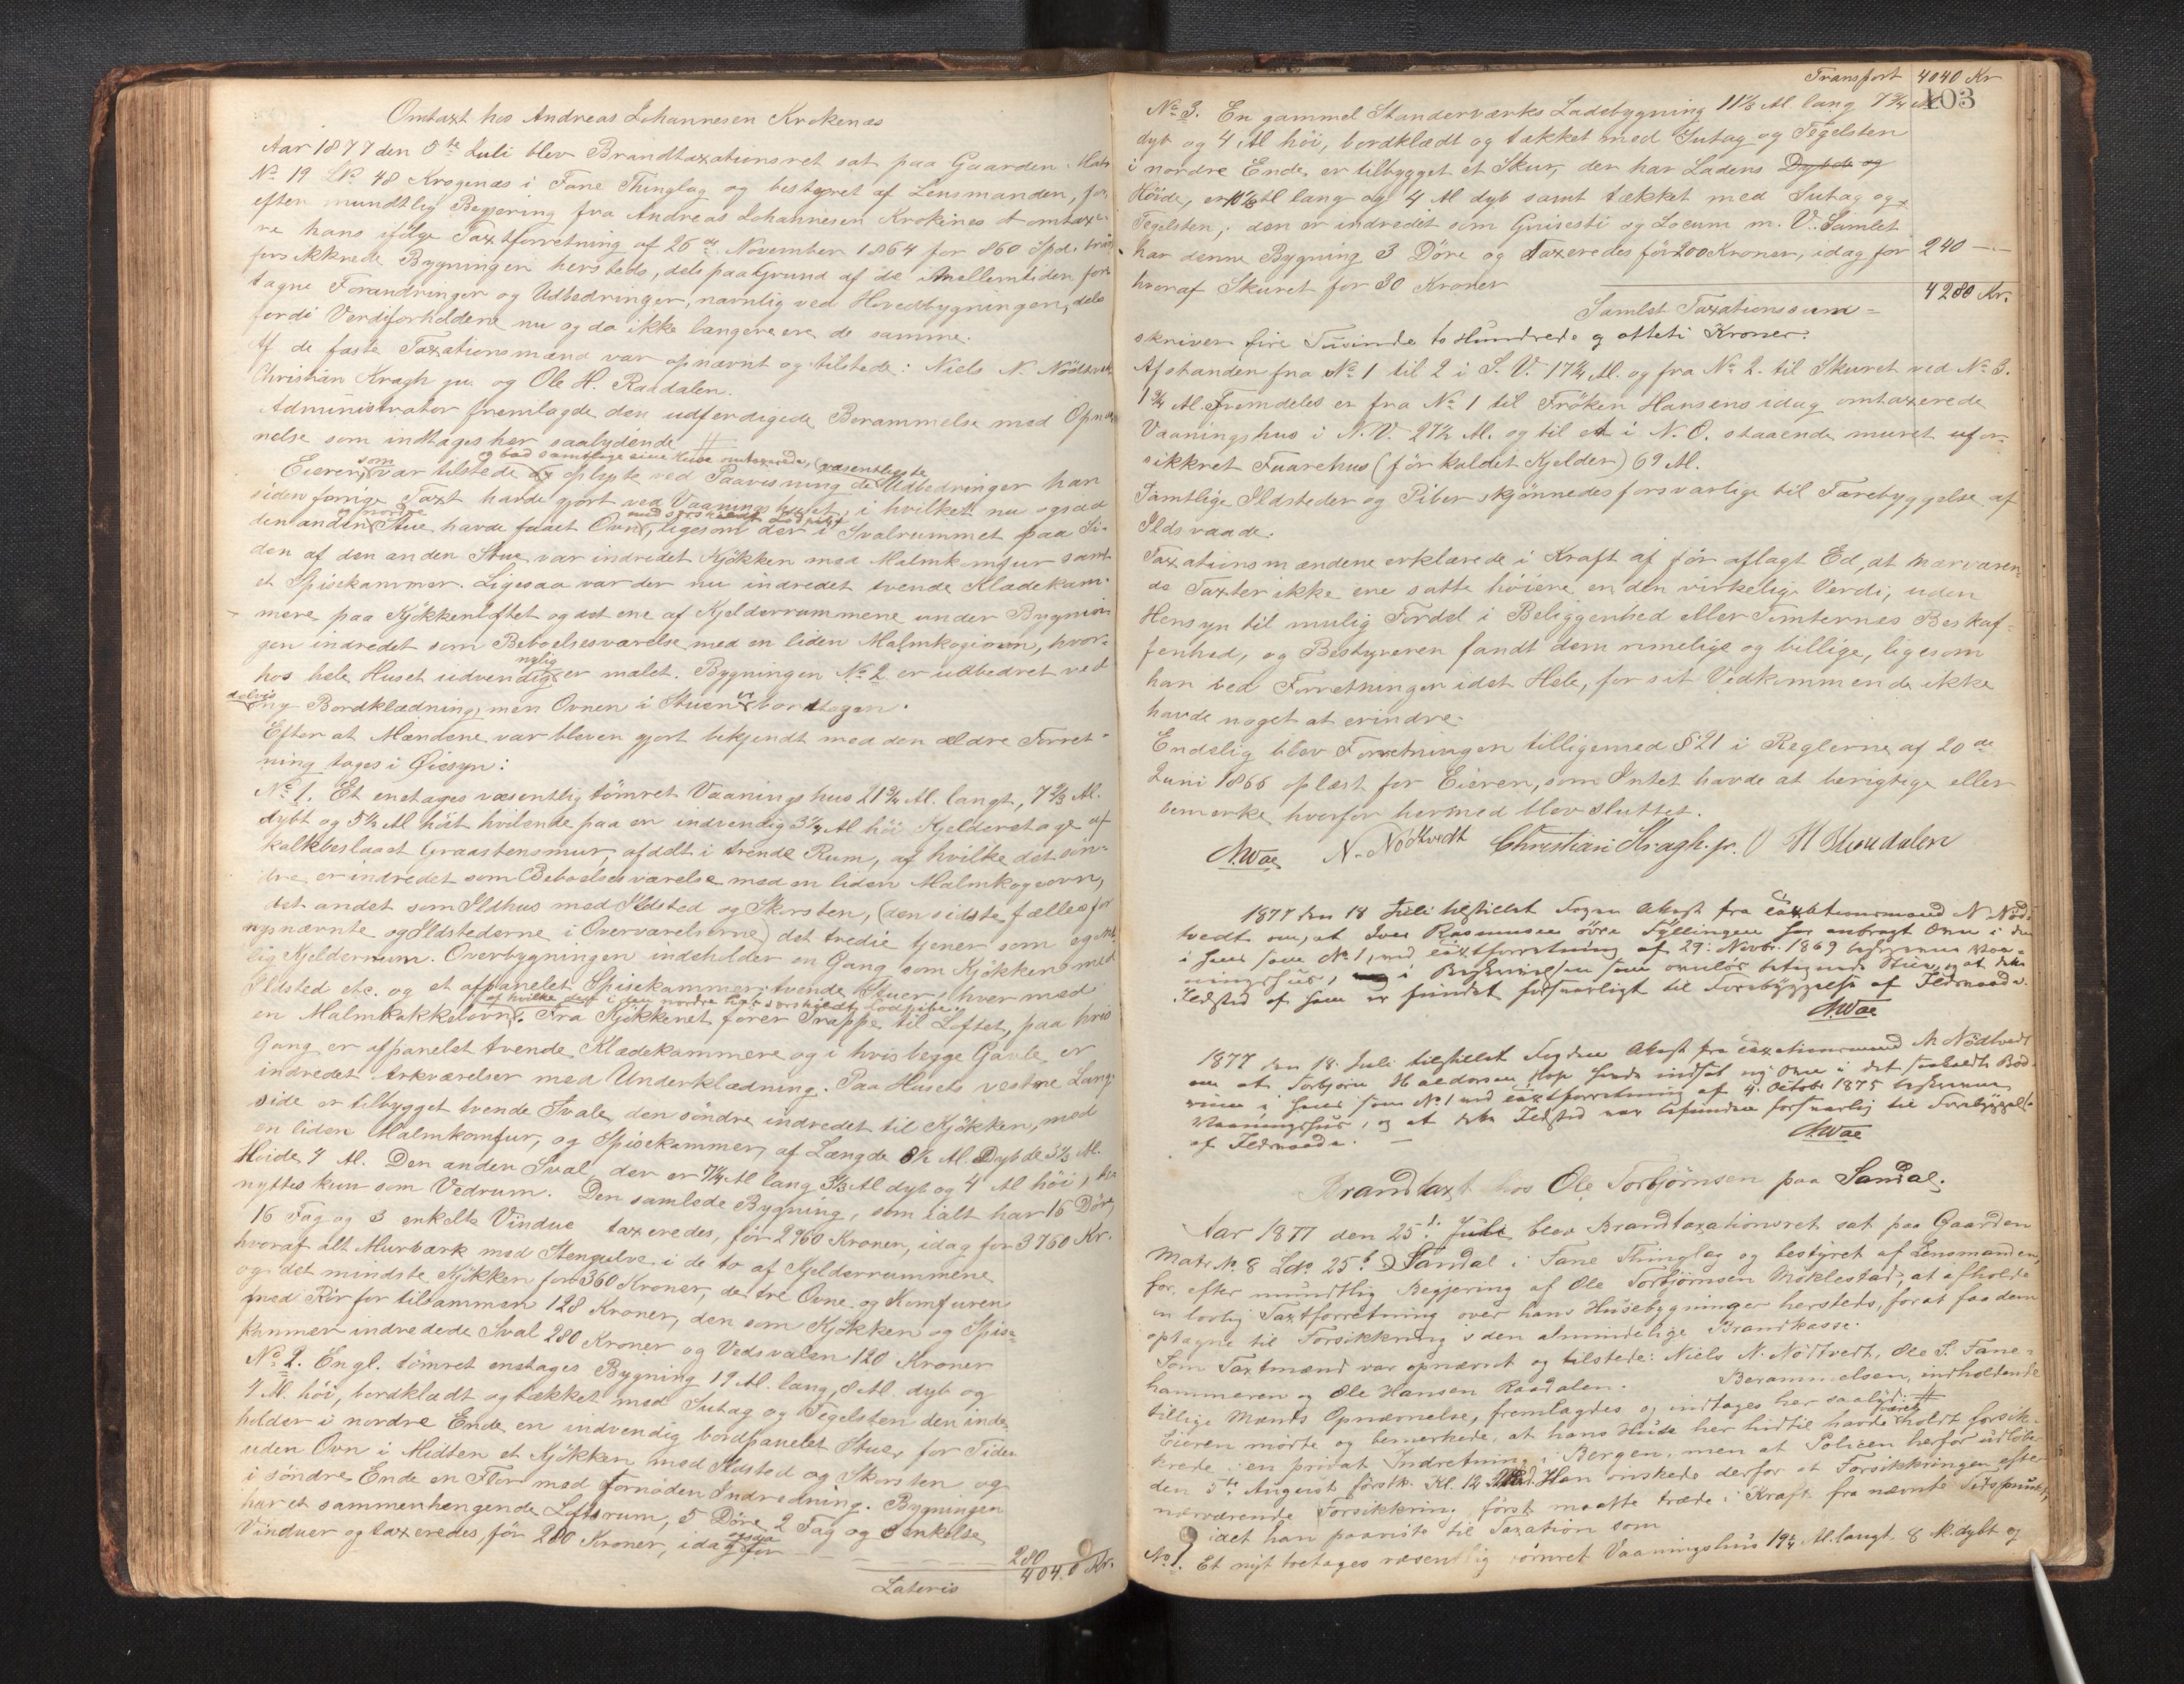 Omtaxt hos Andreas Johannesen Krokenæs
Aar 1877 den 5te Juli blev Brandtaxationsret sat paa Gaarden Matr
No 19 LNo 48 Krogenæs i Fane Thinglag og bestyret af Lensmanden, for
efter mundtlig Begjering fra Andreas Johannesen Krokenes at omtaxe-
re hans ifölge Taxtforretning af 26de November 1864 for 860 Spd.
forsikkrede Bygninger hersteds, dels paa Grund af de imellemtiden fore
tagne Forandringer og Udbedringer, navnlig ved Hovedbygningen, dels
fordi Verdiforholdene nu og da ikke længere ere de samme.
Af de faste Taxationsmænd var opnævnt og tilstede: Niels N. Nödtvedt
Christian Kragh jr. og Ole H. Raadalen.
Administrator fremlagde den udferdigede Berammelse med Opnæv-
nelse som indtages her saalydende #
og bad samtlige sine Huse omtaxerede, (væsentligste
Eieren, som var tilstede oplyste ved Paavisning de Udbedringer han
siden forrige Taxt havde gjort ved Vaaningshuset, i hvilket nu ogsaa
og nordre med særskildt Lodpibe
den anden Stue havde faaet Ovn, ligesom der i Svalrummet paa Si-
den af den anden Stue var indredet Kjökken med Malmkomfur samt
et Spisekammer. Ligesaa var der nu indredet tvende Klædekam-
mere paa Kjökkenloftet og det ene af Kjelderrummene under Bygnin
gen indredet som Beboelsesværelse med en liden Malmkogeovn, hvor-
nylig
hos hele Huset udvendig er malet. Bygningen No 2 er udbedret ved
delvis
ny Bordklædning, men Ovnen i Stuen er borttagen.
Efter at Mændene var bleven gjort bekjendt med den ældre Forret-
ning toges i Øiesyn:
No 1. Et enetages væsentlig tömret Vaaningshus 21 3/4 Al. langt, 7 2/3 Al.
dybt og 5 1/2 Al höit hvilende paa en indvendig 3 1/4 Al höi Kjelderetage af
kalkbeslaaet Graastensmur, afdelt i trende Rum, af hvilke det sön-
dre er indredet som Beboelsesværelse med en liden Malmkogeovn,
det andet som Ildhus med Ildsted og Skorsten, (den sidste fælles for
nysnævnte og Ildstederne i Overværelserne) det tredie tjener som egent
lig Kjelderrum. Overbygningen indeholder en Gang som Kjökken med
Ildsted etc. og et afpanelet Spisekammer; tvende Stuer, hver med
af hvilke den i den nordre har særskildt Lodpibe
en Malmkakkelovn. Fra Kjökkenet förer Trappe til Loftet, paa hvis
Gang er afpanelet tvende Klædekammere og i hvis begge Gavle er
indredet Arkværelser med Underklædning. Paa Husets vestre Lang-
side er tilbygget tvende Svale, den söndre indredet til Kjökken, med
en liden Malmkomfur, og Spisekammer, af Længde 8 1/2 Al. Dybde 3 1/3 Al.
Höide 4 Al. Den anden Sval, der er 7 1/4 Al lang 3 1/3 Al dyb og 4 Al höi, be
nyttes kun som Vedrum. Den samlede Bygning, som ialt har 16 Döre,
16 Fag og 3 enkelte Vindue taxeredes, för 2960 Kroner, idag for 3760 Kr.
hvoraf alt Murværk med Stengulve i de to af Kjelderrummene
og det mindste Kjökken for 360 Kroner, de tre Ovne og Komfuren
med Rör for tilsammen 128 Kroner, den som Kjökken og Spise-
kammer indredede Sval 280 Kroner og Vedsvalen 120 Kroner
No 2. En gl. tömret enetages Bygning 19 Al. lang, 8 Al. dyb og
4 Al. höi, bordklædt og tækket med Sutag og Tegelsten den inde-
holder i nordre Ende en indvendig bordpanelet Stue, for Tiden
uden Ovn i Midten et Kjökken med Ildsted og Skorsten og
i söndre Ende en Flor med fornöden Indredning. Bygningen
har et sammenhengende Loftsrum, 5 Döre 2 Fag og 3 enkelte
Vinduer og taxeredes för 280 Kroner, idag ogsaa for 280
Lateris 4040 Kr.
Transport 4040 Kr
103
No 3. En gammel Standerværks Ladebygning 11 1/2 Al. lang 7 3/4 Al
dyb og 4 Al höi, bordklædt og tækket med Sutag og Tegelsten
i nordre Ende er tilbygget et Skur, der har Ladens Dybde og
Höide, er Al lang og 4 Al dyb samt tækket med Sutag og
Tegelsten; den er indredet som Grisesti og Locum m. V. Samlet
har denne Bygning 3 Döre og taxeredes för 200 Kroner, idag for 240 —
hvoraf Skuret for 30 Kroner
Samlet Taxationssum = 4280 Kr.
skriver fire Tusinde to Hundrede og otteti Kroner.
Afstanden fra No 1 til 2 i S. V. 17 1/4 Al. og fra No 2. til Skuret ved No 3.
1 3/4 Al. Fremdeles er fra No 1 til Fröken Hansens idag omtaxerede
Vaaningshus i N. V. 27 1/2 Al. og til et i N. O. staaende muret ufor-
sikkret Fuarehus (för kaldet Kjelder) 69 Al.
Samtlige Ildsteder og Piber skjönnedes forsvarlige til Forebyggelse af
Ildsvaade.
Taxationsmændene erklærede i Kraft af för aflagt Ed, at nærværen-
de Taxter ikke ere satte höiere, en den virkelige Verdi, uden
Hensyn til mulig Fordel i Beliggenhed eller Tomternes Beskaf-
fenhed, og Bestyreren fandt dem rimelige og billige, ligesom
han ved Forretningen idet Hele, for sit Vedkommende ikke
havde noget at erindre.
Endelig blev Forretningen tilligemed § 21 i Reglerne af 20de
Juni 1866 oplæst for Eieren, som Intet havde at berigtige eller
bemerke hvorfor hermed blev sluttet.
N. Nödtvedt Christian Kragh. jr. O H Raadalen
1877 den 18 Juli tilstillet Fogden Attest fra Taxationsmand N Nödt-
vedt om, at Iver Rasmussen övre Fyllingen har anbragt Ovn i den
i hans som No 1, ved Taxtforretning af 29: Novbr. 1869 beskrevne Vaa-
ningshus, i Beskrivelsen som ovnlös betegnede Stue, og at dette
Ildsted af ham er fundet forsvarligt til Forebyggelse af Ildsvaade.
1877 den 18. Juli tilstillet Fogden Attest fra Taxationsmand N Nödtvedt
om at Torbjörn Haldorsen Hop havde indsat ny Ovn i det saakaldte Bod-
rum i hans som No 1 ved Taxtforretning af 4. October 1875 beskrevne
Vaaningshus, og at dette Ildsted var befunden forsvarlig til Forebyggelse
af Ildsvaade.
Brandtaxt hos Ole Torbjørnsen paa Sandal.
Aar 1877 den 25de Juli blev Brandtaxationsret sat paa Gaarden
Matr No. 8 LNo. 25b Sandal i Fane Thinglag og bestyret af Lensmanden,
for, efter mundtlig Begjering af Ole Torbjørnsen Möklestad, at afholde
en lovlig Taxtforretning over hans Husebygninger hersteds, for at faa dem
optagne til Forsikkring i den almindelige Brandkasse.
Som Taxtmænd var opnævnt og tilstede: Niels N. Nödtvedt, Ole S. Fane-
hammeren og Ole Hansen Raadalen. Berammelsen, indholdende
tillige Mænds Opnævnelse, fremlagdes og indtages her saalyd: #
været
Eieren mödte og bemerkede, at hans Huse her hidtil havde holdt forsik-
krede i en privat Indretning i Bergen, men at Policen herfor udlöber
den 5te August förstk. Kl. 12 Mid. Han önskede derfor at Forsikkringen efter
nærværende Forsikkring först maatte træde i Kraft fra nævnte Tidspunkt,
idet han paaviste til Taxation som
No 1. Et nyt toetages væsentlig tömret Vaaningshus 19 1/4 Al. langt. 8 Al. dybt og